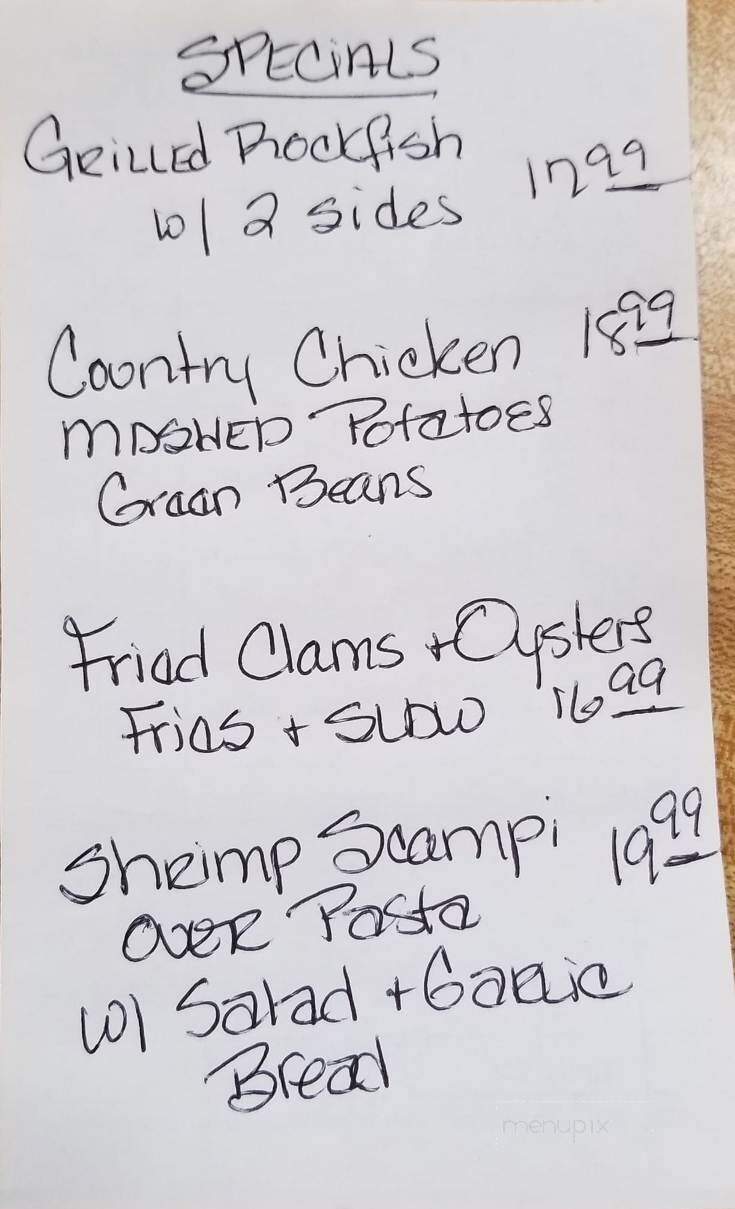 SPECiALS
GRiLLED Rockfish 17 99
w/ 2 sides
Country Chicken 18 99
MASHED Potatoes
Green Beans
Fried Clams + Oysters
Fries + SLAW 16 99
Shrimp Scampi 19 99
OVER Pasta
w/ Salad + Garlic
Bread
menupix